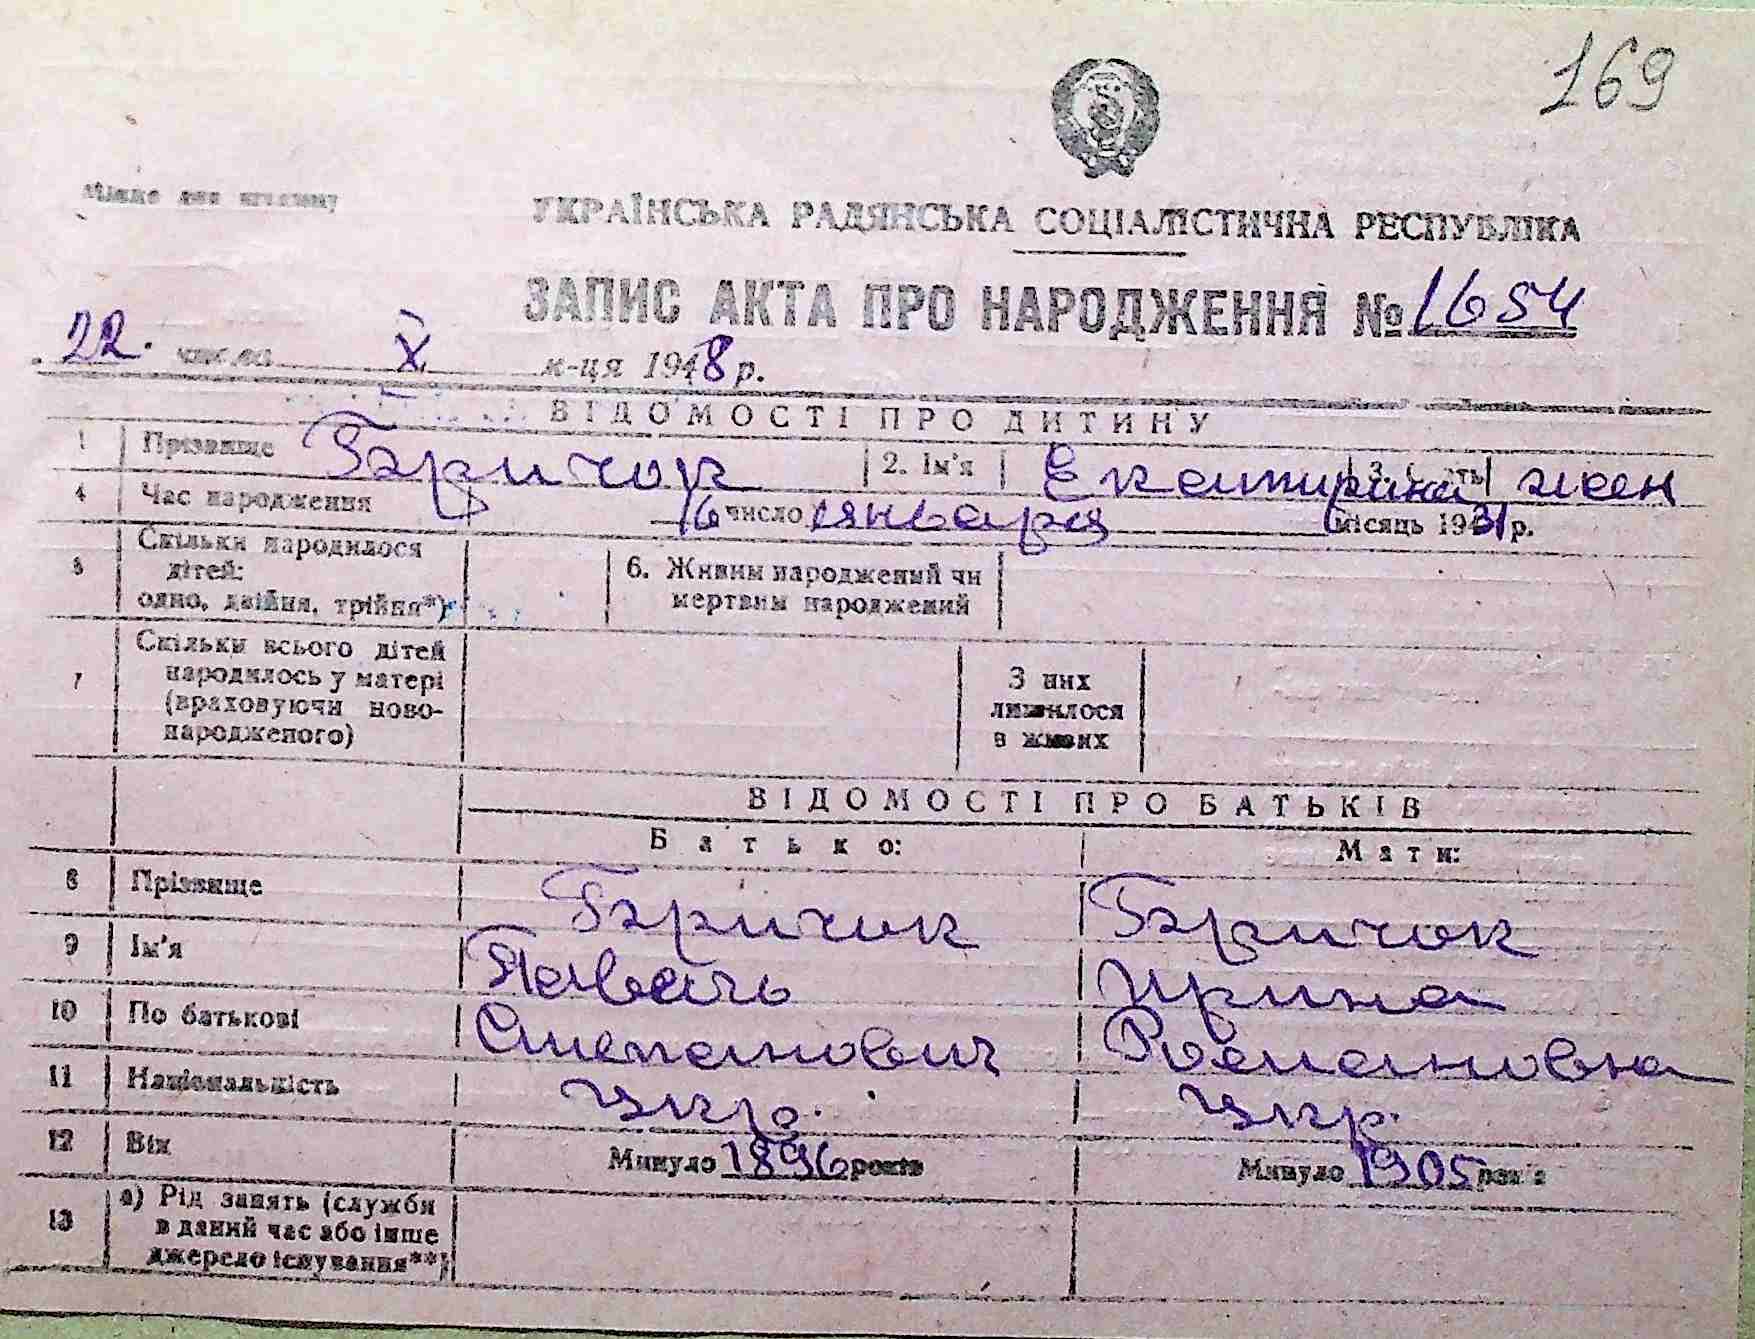 169
Місце для штампу
УКРАЇНСЬКА РАДЯНСЬКА СОЦІАЛІСТИЧНА РЕСПУБЛІКА
ЗАПИС АКТА ПРО НАРОДЖЕННЯ № 1654
22. число X м-ця 1948 р.
ВІДОМОСТІ ПРО ДИТИНУ
1 Прізвище Бричок 2. Ім'я Екатирина 3. Стать жен
4 Час народження 16 число января місяць 1931 р.
5 Скільки народилося
дітей:
одно, двійня, трійня*)
6. Живим народжений чи
мертвим народжений
7 Скільки всього дітей
народилось у матері
(враховуючи ново-
народженого)
З них
лишилося
в живих
ВІДОМОСТІ ПРО БАТЬКІВ
Батько: Мати:
8 Прізвище Бричок Бричок
9 Ім'я Павель Ирина
10 По батькові Степанович Романовна
11 Національність укр. укр.
12 Вік Минуло 1896 років Минуло 1905 років
13 а) Рід занять (служби
в даний час або інше
джерело існування**)